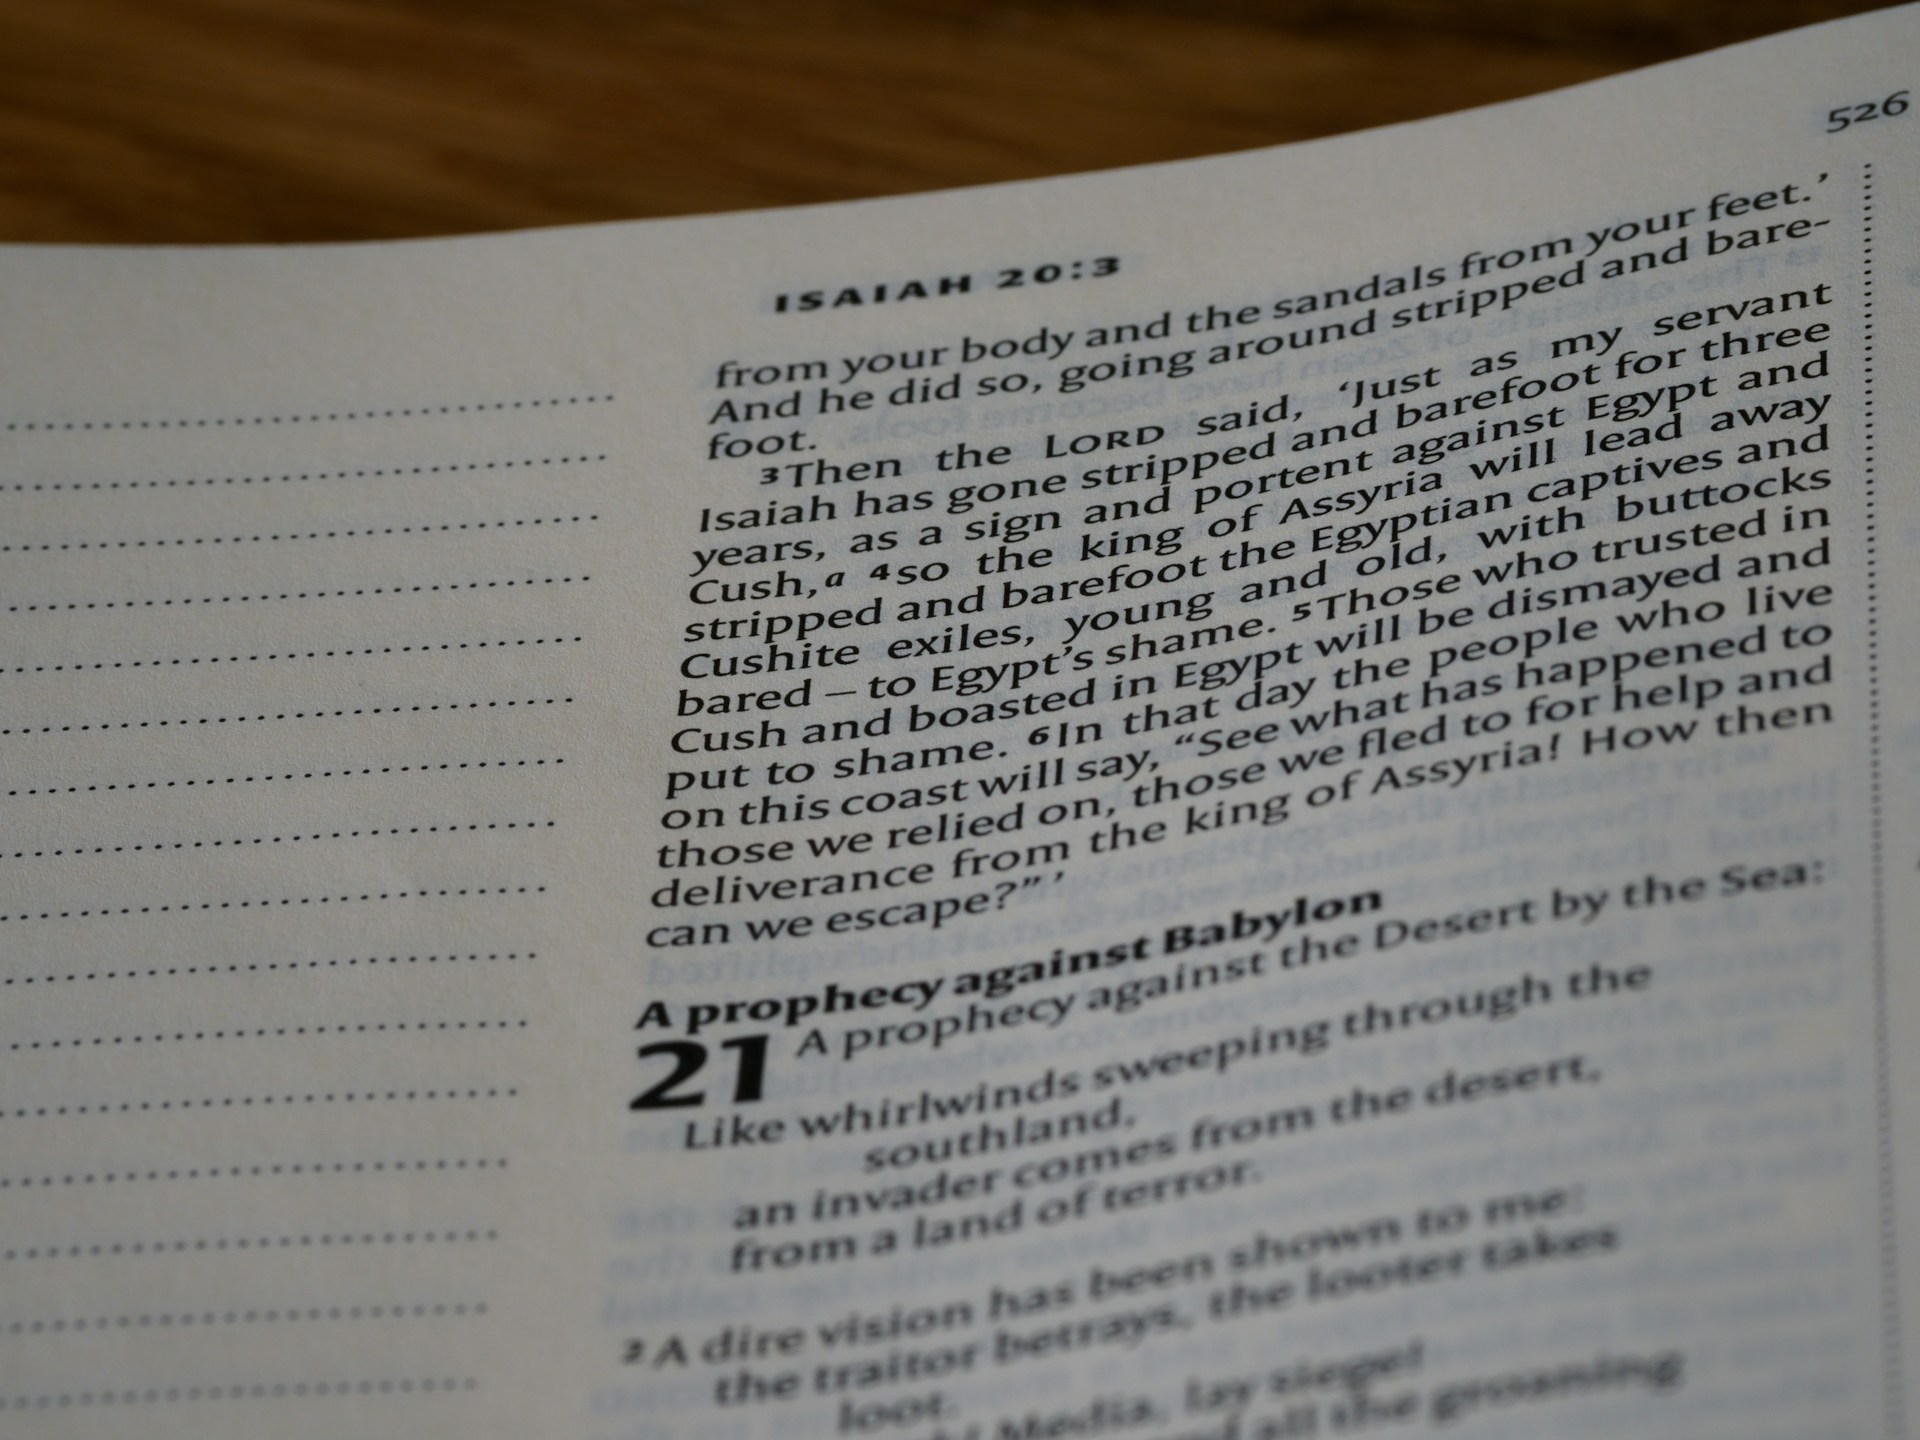 526
ISAIAH 20:3
from your body and the sandals from your feet.’
And he did so, going around stripped and bare-
foot.
3Then the LORD said, ‘Just as my servant
Isaiah has gone stripped and barefoot for three
years, as a sign and portent against Egypt and
Cush,a 4so the king of Assyria will lead away
stripped and barefoot the Egyptian captives and
Cushite exiles, young and old, with buttocks
bared – to Egypt’s shame. 5Those who trusted in
Cush and boasted in Egypt will be dismayed and
put to shame. 6In that day the people who live
on this coast will say, “See what has happened to
those we relied on, those we fled to for help and
deliverance from the king of Assyria! How then
can we escape?” ’
A prophecy against Babylon
21 A prophecy against the Desert by the Sea:
Like whirlwinds sweeping through the
southland,
an invader comes from the desert,
from a land of terror.
2A dire vision has been shown to me:
the traitor betrays, the looter takes
loot.
Media, lay siege!
all the groaning